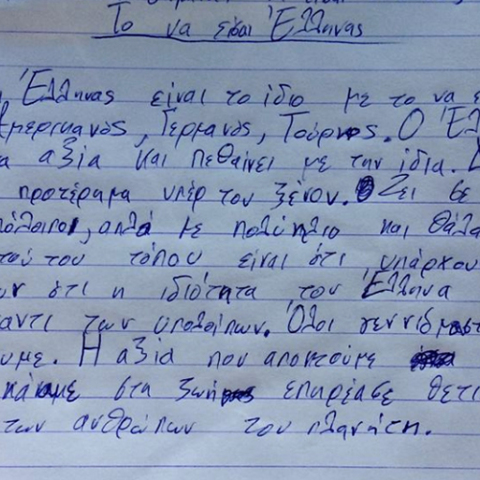 Το να είσαι Έλληνας
Έλληνας είναι το ίδιο με το να ε
μερικανός, Γερμανός, Τούρκος. Ο Έλ
α αξία και πεθαίνει με την ίδια.
προτέρημα υπέρ του ξένου. Ζει σε
πόλοιποι, αλλά με πολύ ήλιο και θάλα
τού του τόπου είναι ότι υπάρχου
ν ότι η ιδιότητα του Έλληνα
αντι των υπολοίπων. Όλοι γεννιόμαστ
ουμε. Η αξία που αποκτούμε
κάναμε στα ζωή επηρέασε θετι
των ανθρώπων του πλανήτη.